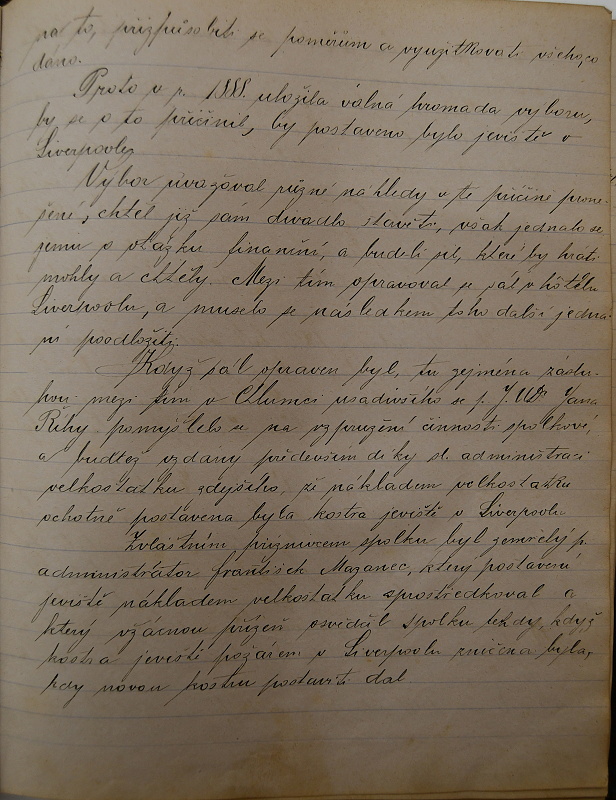 na to, přizpůsobiti se poměrům a využitkovati všeho, co
dáno.
Proto v r. 1888. uložila valná hromada výboru,
by se o to přičinil, by postaveno bylo jeviště v
Liverpoolu.
Výbor uvažoval různé náhledy v té příčině prone-
šené, chtěl již sám divadlo stavěti, však jednalo se
jemu o otázku finanční, a budeli sil, které by hráti
mohly a chtěly. Mezi tím opravoval se sál v hôtelu
Liverpoolu, a muselo se následkem toho další jedná-
ní poodložiti.
Když sál opraven byl, tu zejména záslu-
hou mezi tím v Chlumci usadivšího se p. J. UDr Jana
Řihy pomýšlelo se na vzpružení činnosti spolkové,
a budtež vzdány především díky sl. administraci
velkostatku zdejšího, že nákladem velkostatku
ochotně postavena byla kostra jeviště v Liverpoolu
Zvláštním příznivcem spolku byl zemřelý p.
administrátor František Mazanec, který postavení
jeviště nákladem velkostatku sprostředkoval a
který vzácnou přízeň osvědčil spolku tehdy, když
kostra jeviště požárem v Liverpoolu zničena byla,
kdy novou kostru postaviti dal